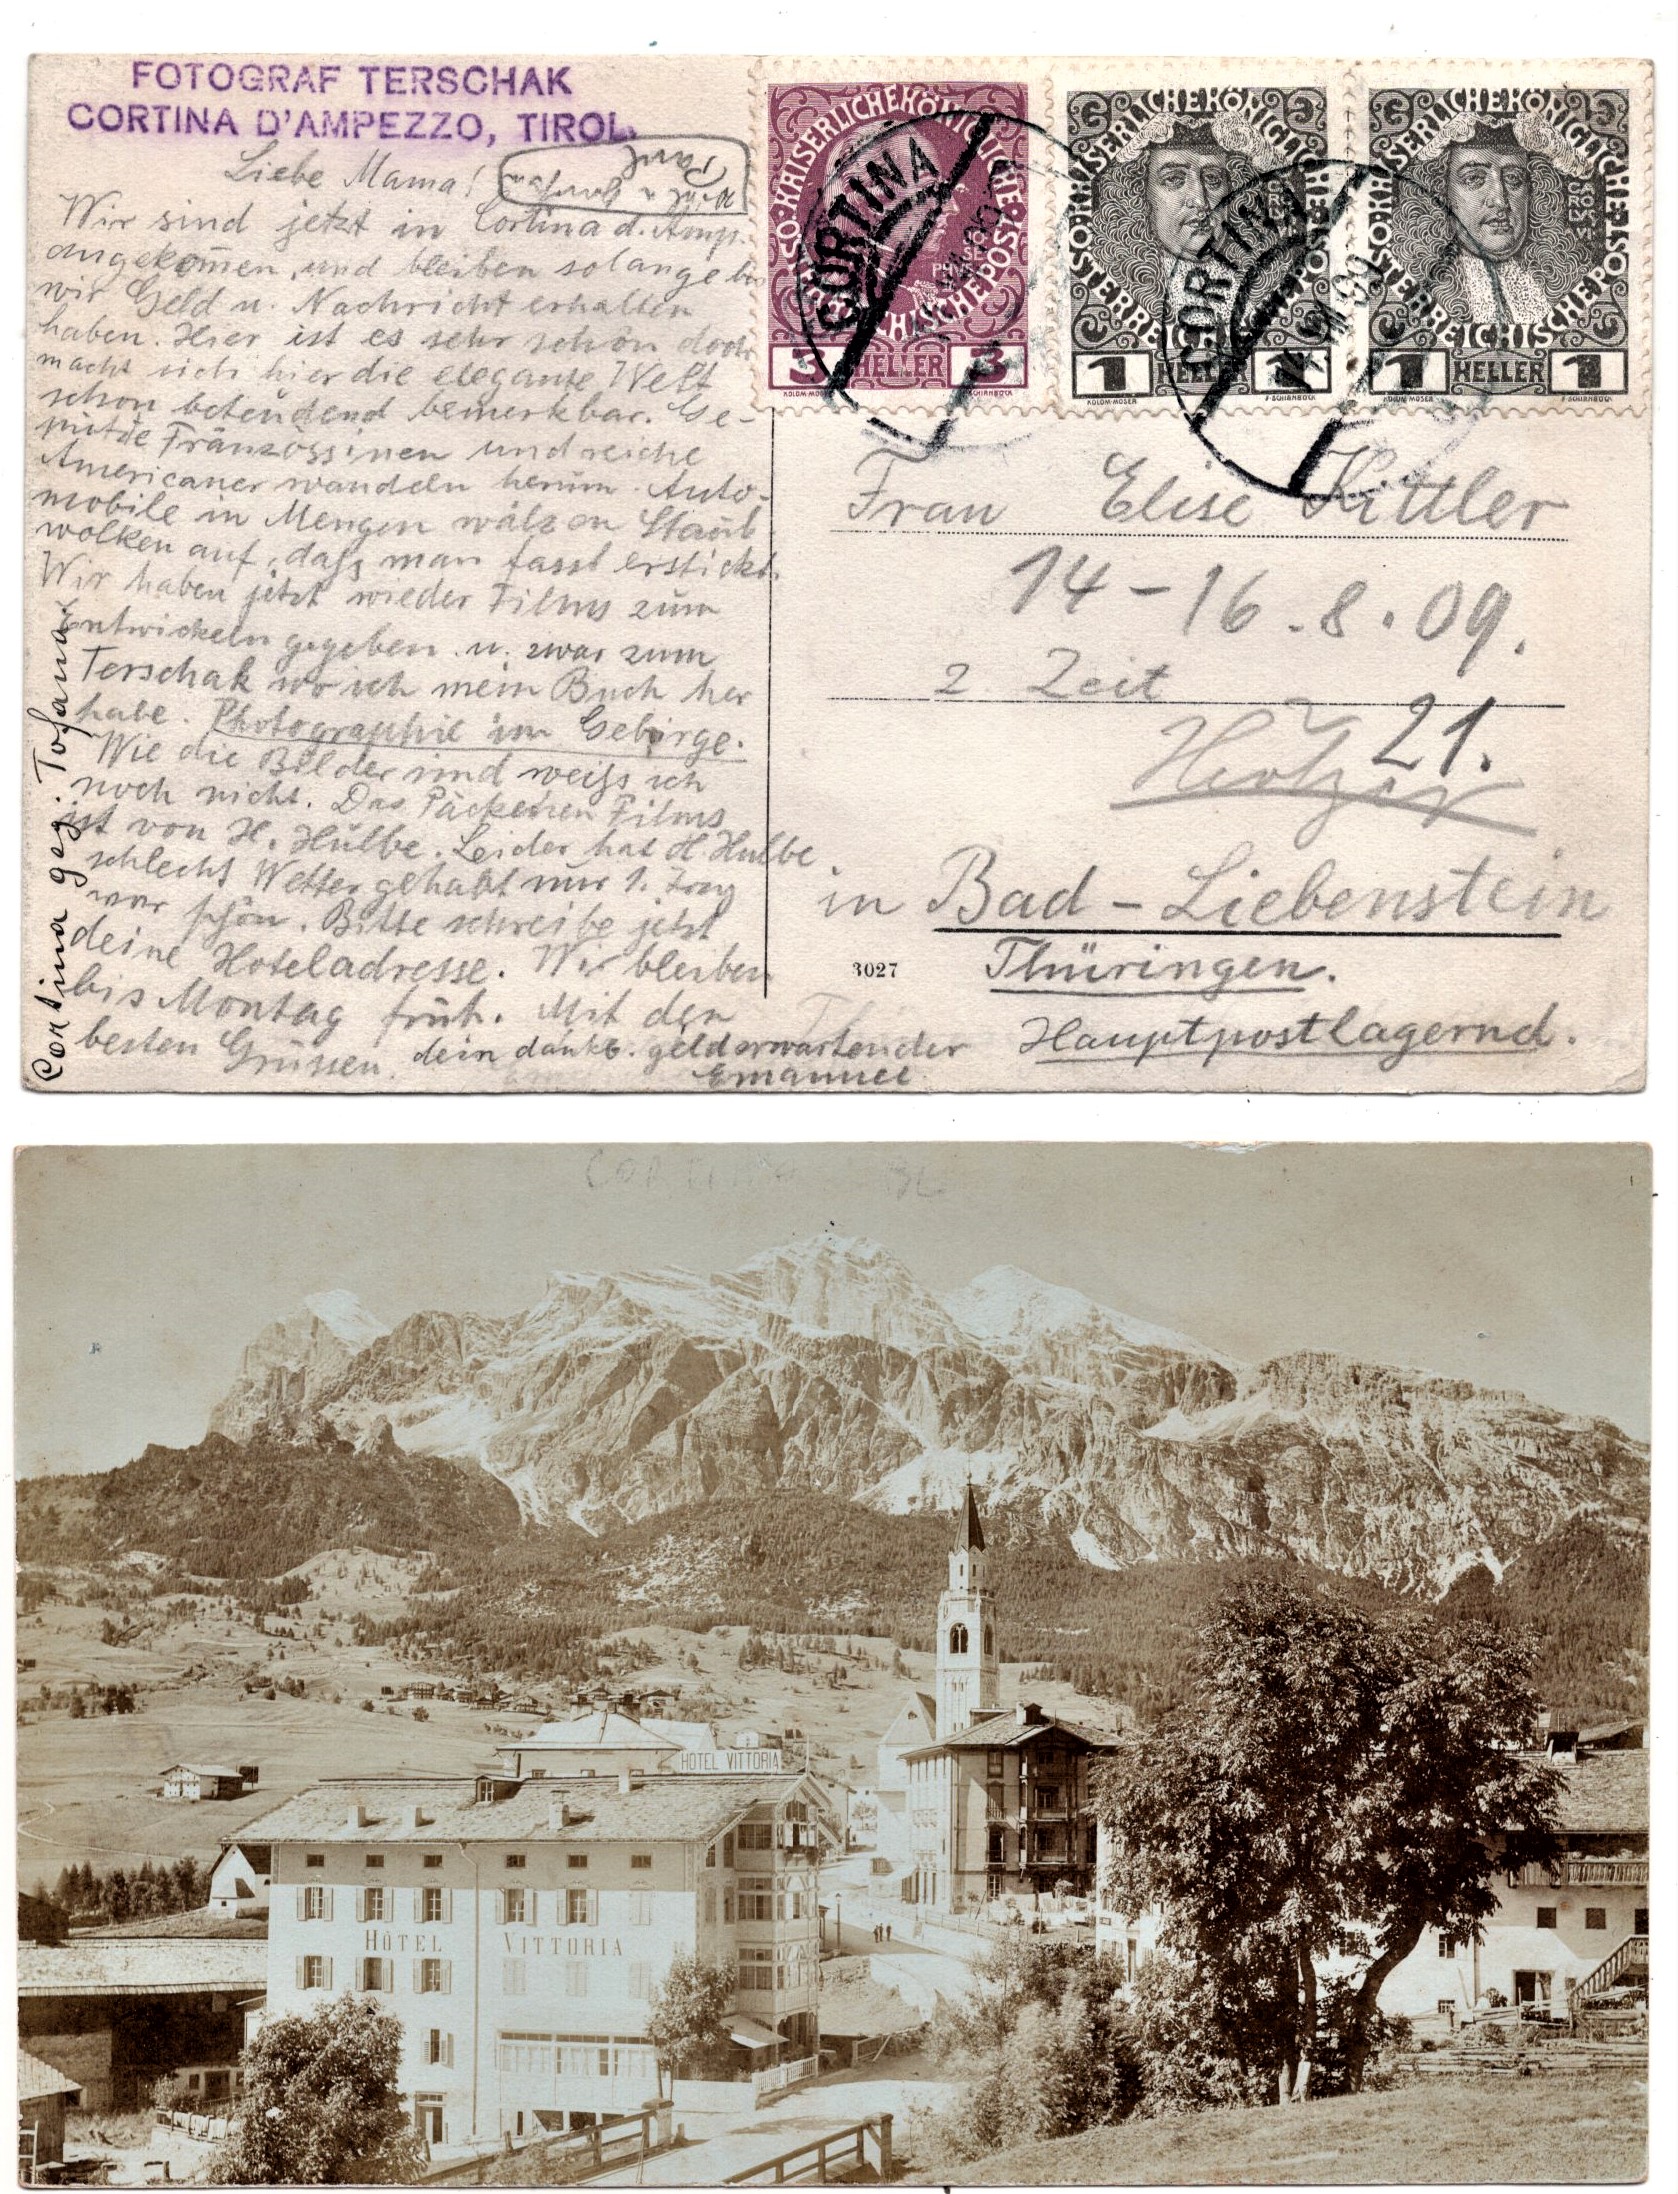 FOTOGRAF TERSCHAK
CORTINA D'AMPEZZO, TIROL.
Liebe Mama!
Wir sind jetzt in Cortina d. Amp.
angekom̄en, und bleiben solange bis
wir Geld u. Nachricht erhalten
haben. Hier ist es sehr schön doch
macht sich hier die elegante Welt
schon beteudend bemerkbar. Ge-
putzte Französsinen und reiche
Americaner wandeln herum. Auto-
mobile in Mengen wälzen Staub
wolken auf, dafs man fasst erstickt.
Wir haben jetzt wieder Films zum
Entwickeln gegeben u. zwar zum
Terschak wo ich mein Buch her
habe. Photographie im Gebirge.
Wie die Bilder sind weifs ich
noch nicht. Das Päckchen Films
ist von H. Hülbe. Leider hat H. Hülbe
schlecht Wetter gehabt nur 1. Tag
war schön. Bitte schreibe jetzt
deine Hoteladresse. Wir bleiben
bis Montag früh. Mit den
besten Grüssen. dein dankb. gelderwartender
Emanuel
Cortina geg. Tofana.
KAISERLICHE KÖNIGLICHE ÖSTERREICHISCHE POST
3 HELLER 3
KOLOM·MOSER F·SCHIRNBÖCK
KAISERLICHE KÖNIGLICHE ÖSTERREICHISCHE POST
CAROLVS VI
1 HELLER 1
KOLOM·MOSER F·SCHIRNBÖCK
KAISERLICHE KÖNIGLICHE ÖSTERREICHISCHE POST
CAROLVS VI
1 HELLER 1
KOLOM·MOSER F·SCHIRNBÖCK
CORTINA
CORTINA
Frau Elise Kittler
14-16.8.09.
z. Zeit
21.
in Bad-Liebenstein
Thüringen.
3027
Hauptpostlagernd.
CORTINA BL
HOTEL VITTORIA
HÔTEL VITTORIA